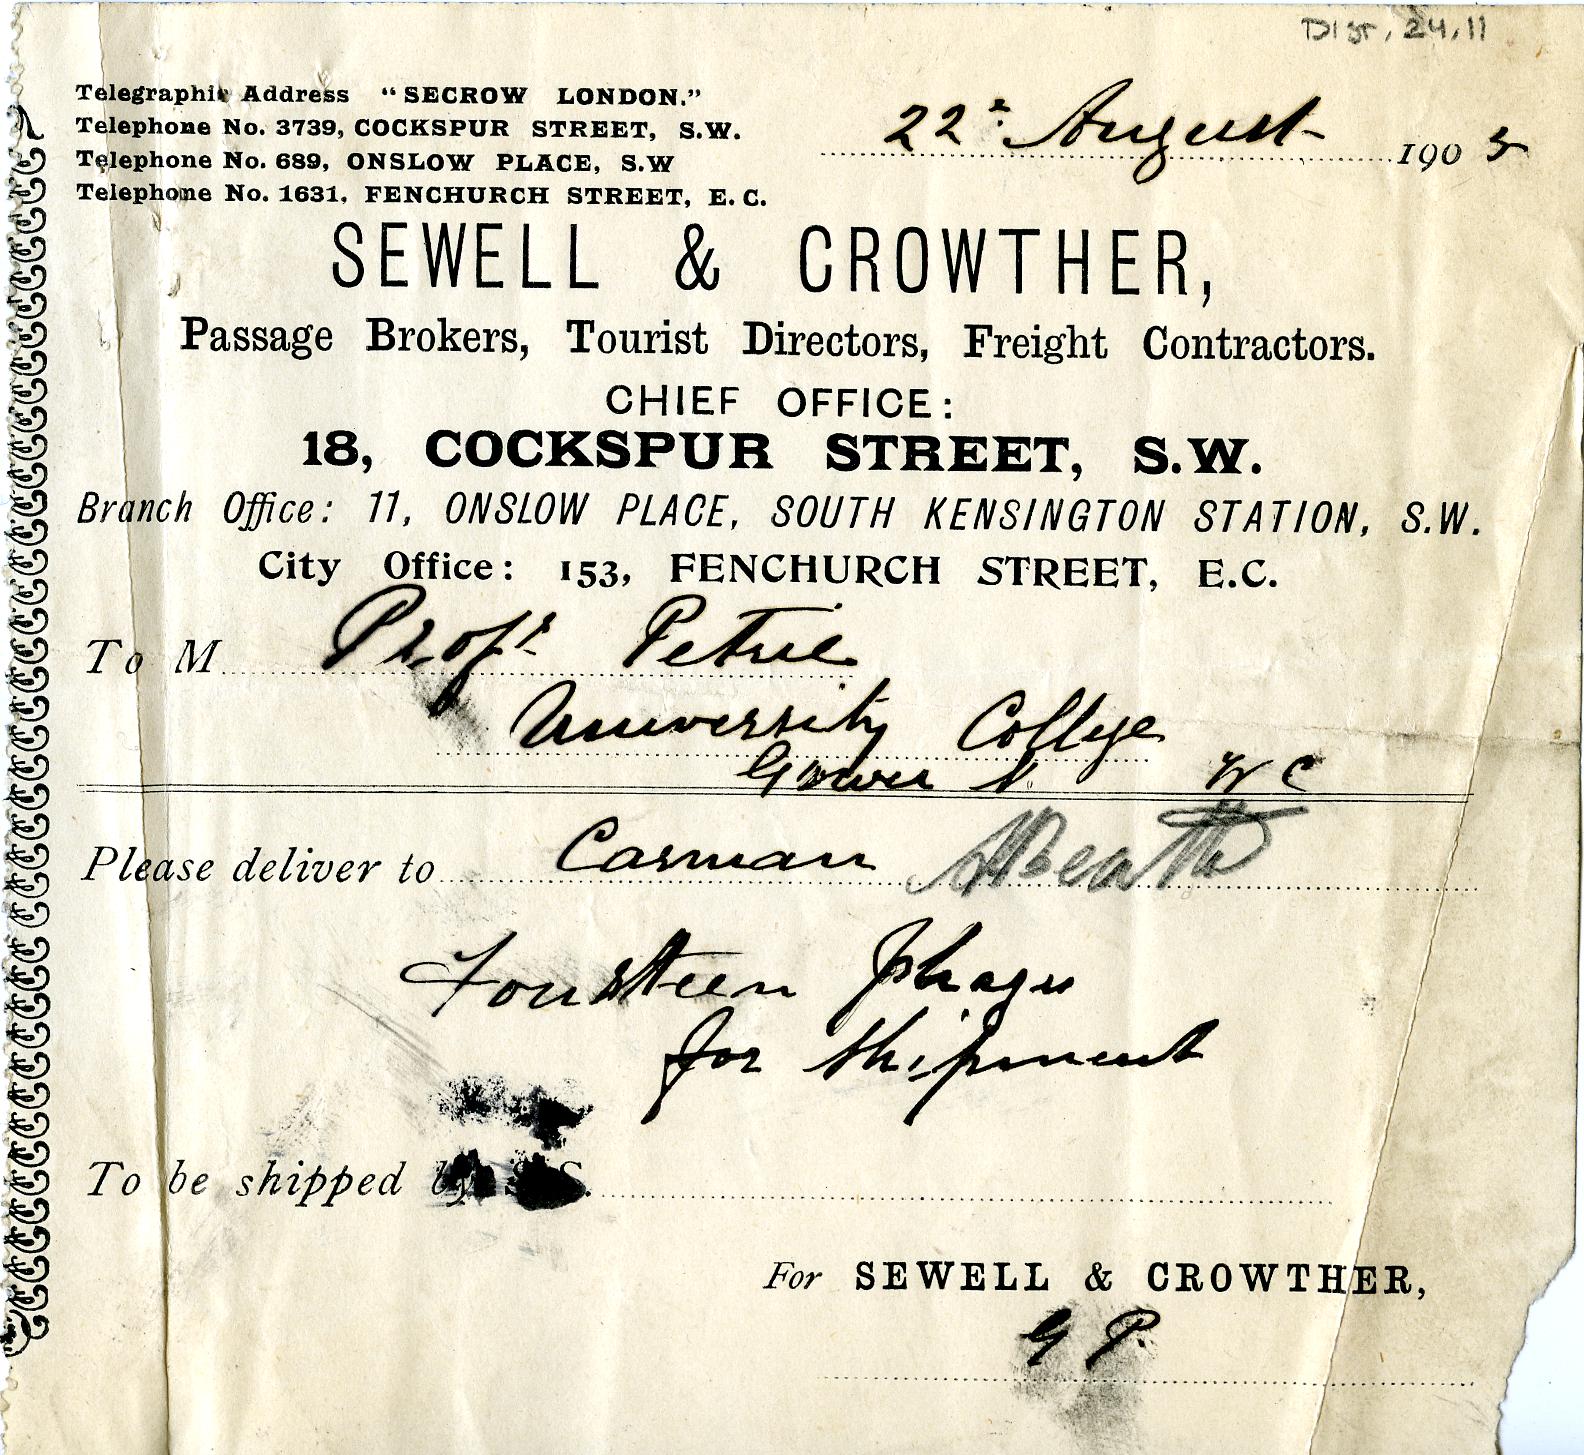 Distr. 24.11
Telegraphic Address "SECROW LONDON."
Telephone No. 3739, COCKSPUR STREET, S.W.
Telephone No. 689, ONSLOW PLACE, S.W
Telephone No. 1631, FENCHURCH STREET, E.C.
22d August 1905
SEWELL & CROWTHER,
Passage Brokers, Tourist Directors, Freight Contractors.
CHIEF OFFICE:
18, COCKSPUR STREET, S.W.
Branch Office: 11, ONSLOW PLACE, SOUTH KENSINGTON STATION, S.W.
City Office: 153, FENCHURCH STREET, E.C.
To M Profr Petrie
University College
Gower St WC
Please deliver to Carman
Fourteen pkages
for shipment
To be shipped by S.S.
For SEWELL & CROWTHER,
G P.